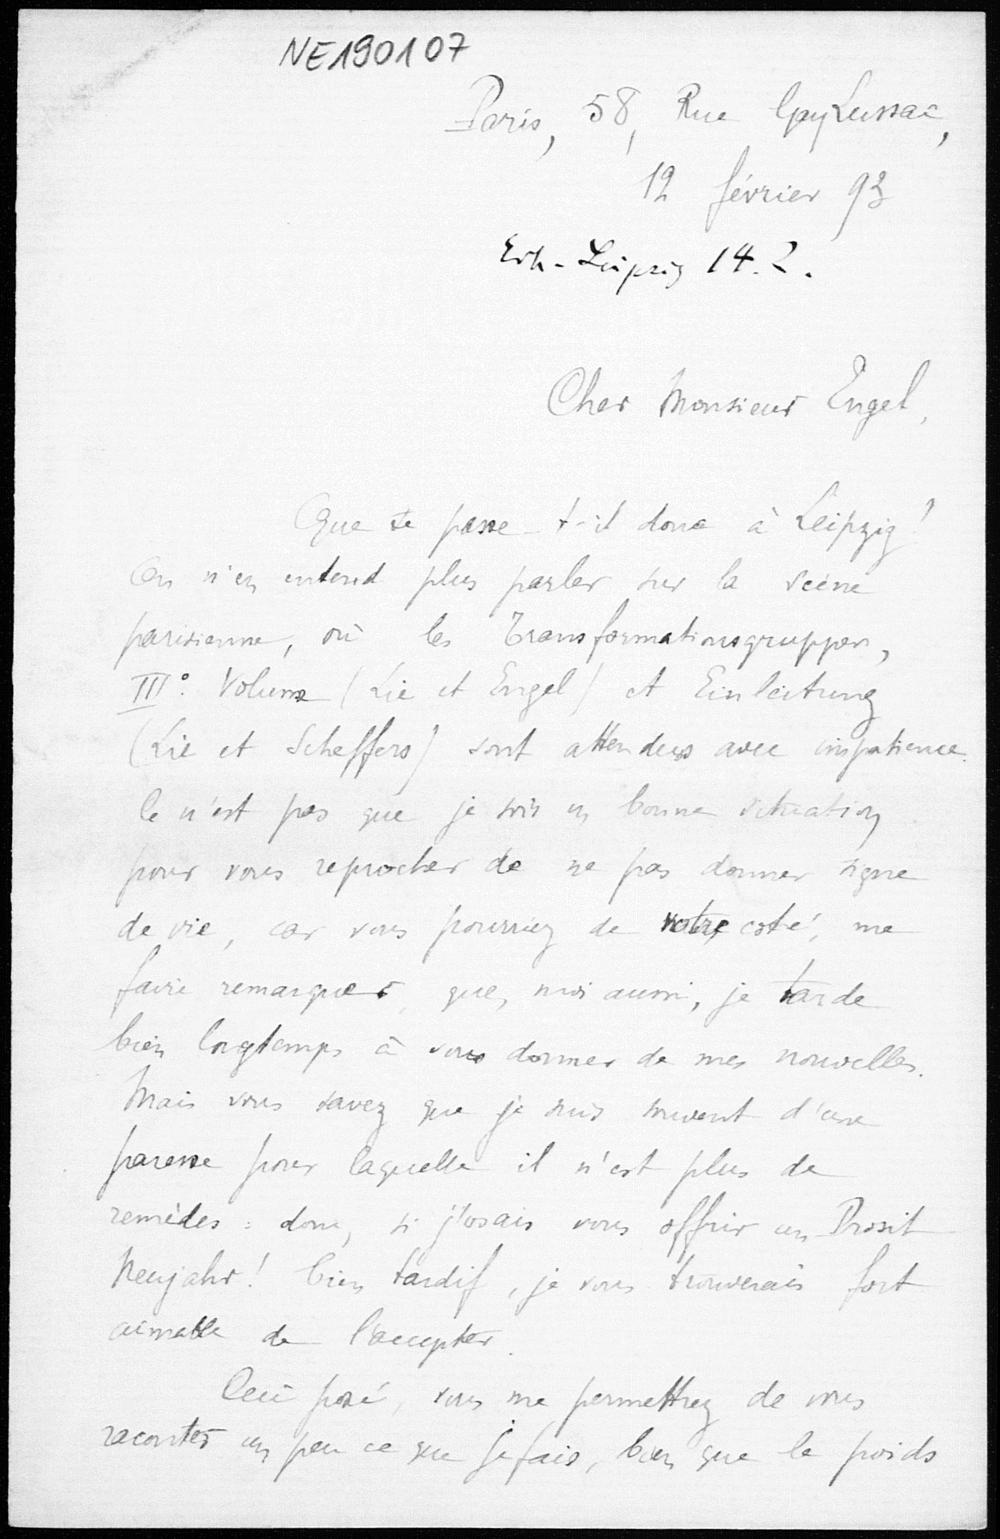 NE190107
Paris, 58, Rue GayLussac,
12 février 93
Erh. Leipzig 14.2.
Cher Monsieur Engel,
Que se passe-t-il donc à Leipzig?
On n'en entend plus parler sur la scène
parisienne, où les Transformationsgruppen,
III° Volume (Lie et Engel) et Einleitung
(Lie et Scheffers) sont attendus avec impatience.
Ce n'est pas que je sois en bonne situation
pour vous reprocher de ne pas donner signe
de vie, car vous pourriez de votre coté, me
faire remarquer, que, moi aussi, je tarde
bien longtemps à vous donner de mes nouvelles.
Mais vous savez que je suis souvent d'une
paresse pour laquelle il n'est plus de
remèdes: donc, si j'osais vous offrir un Prosit
Neujahr! bien tardif, je vous trouverais fort
aimable de l'accepter.
Ceci posé, vous me permettrez de vous
raconter un peu ce que je fais, bien que le poids